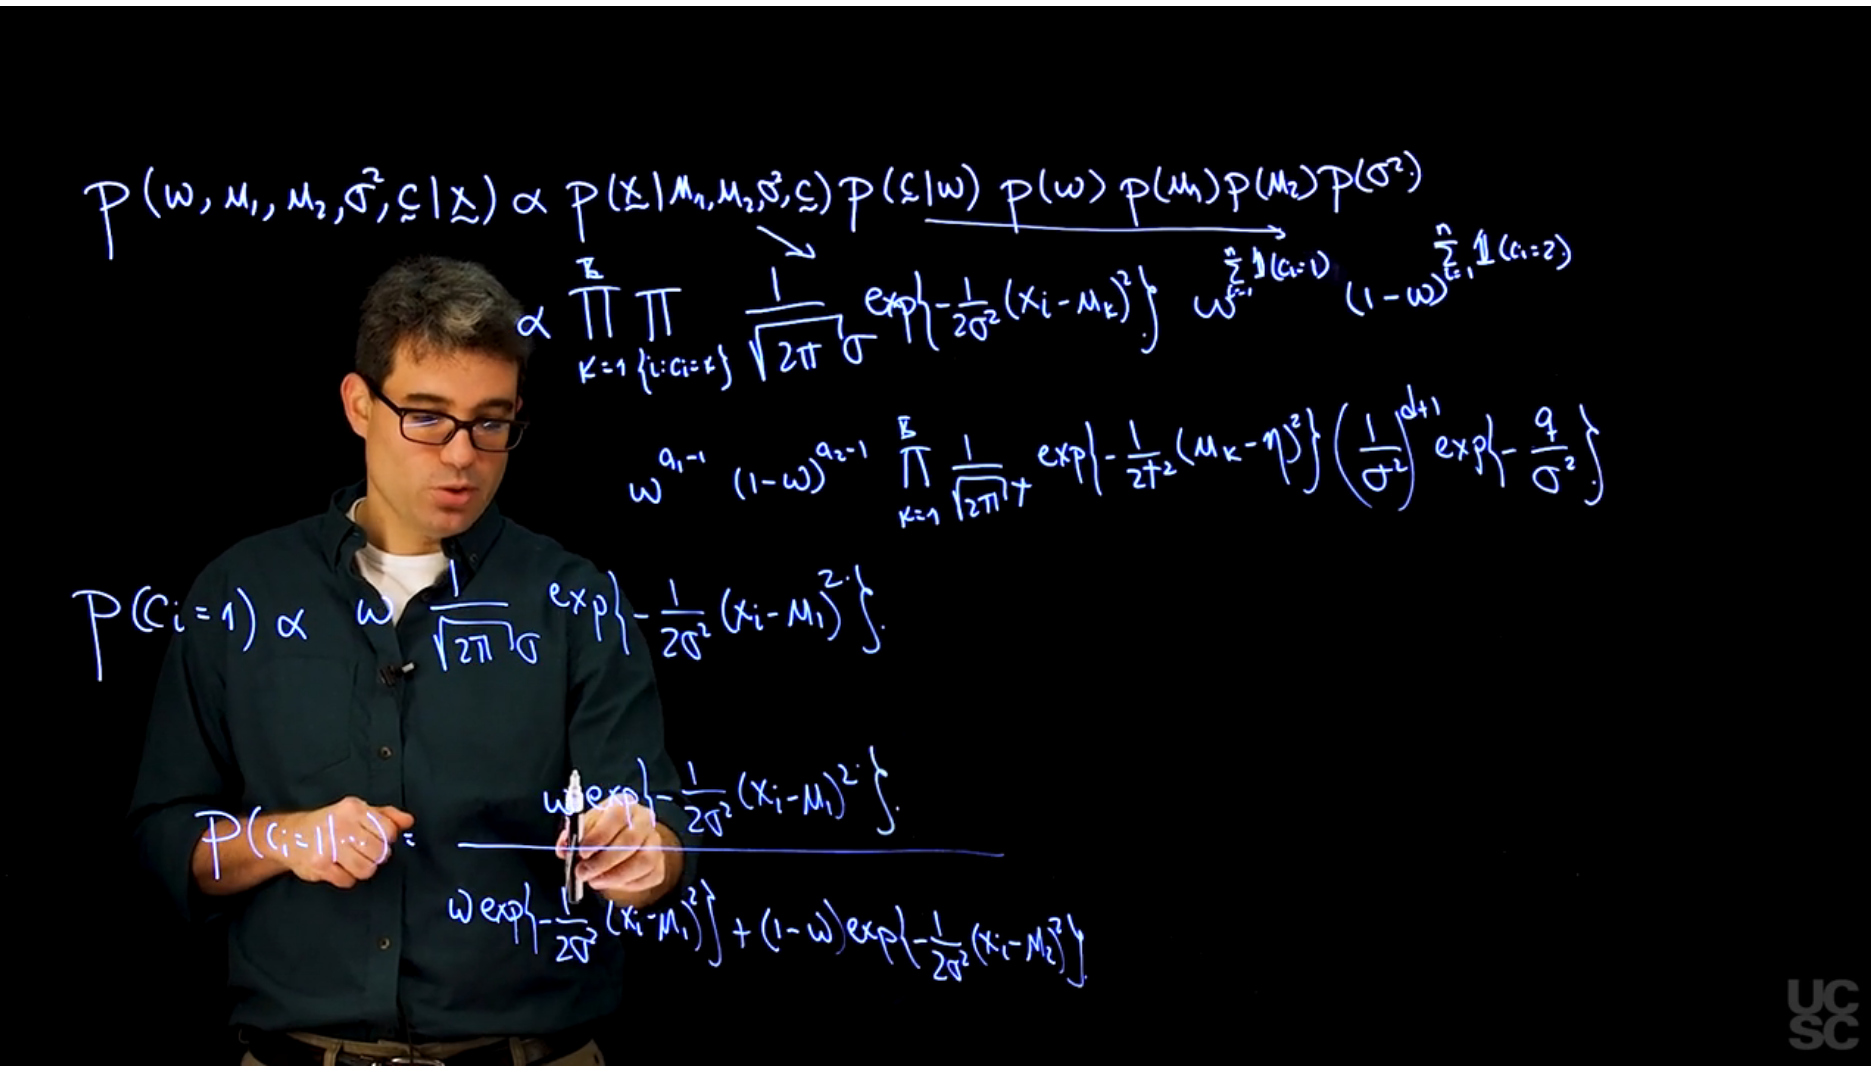 P(ω, μ₁, μ₂, σ², c̰ | x̰) ∝ P(x̰ | μ₁, μ₂, σ², c̰) P(c̰ | ω) P(ω) P(μ₁) P(μ₂) P(σ²)
∝ ∏_{k=1} ∏_{{i:cᵢ=k}} 1/(√(2π) σ) exp{-1/(2σ²) (xᵢ - μ_k)²} ω^{∑_{i=1}^{n} 𝟙(cᵢ=1)} (1-ω)^{∑_{i=1}^{n} 𝟙(cᵢ=2)}
ω^{a₁-1} (1-ω)^{a₂-1} ∏_{k=1} 1/(√(2π) τ) exp{-1/(2τ²) (μ_k - η)²} (1/σ²)^{d+1} exp{-q/σ²}
P(cᵢ = 1) ∝ ω 1/(√(2π) σ) exp{-1/(2σ²) (xᵢ - μ₁)²}.
P(cᵢ=1|...) = ω exp{-1/(2σ²) (xᵢ - μ₁)²}. / ω exp{-1/(2σ²) (xᵢ - μ₁)²} + (1-ω) exp{-1/(2σ²) (xᵢ - μ₂)²}.
UC
SC